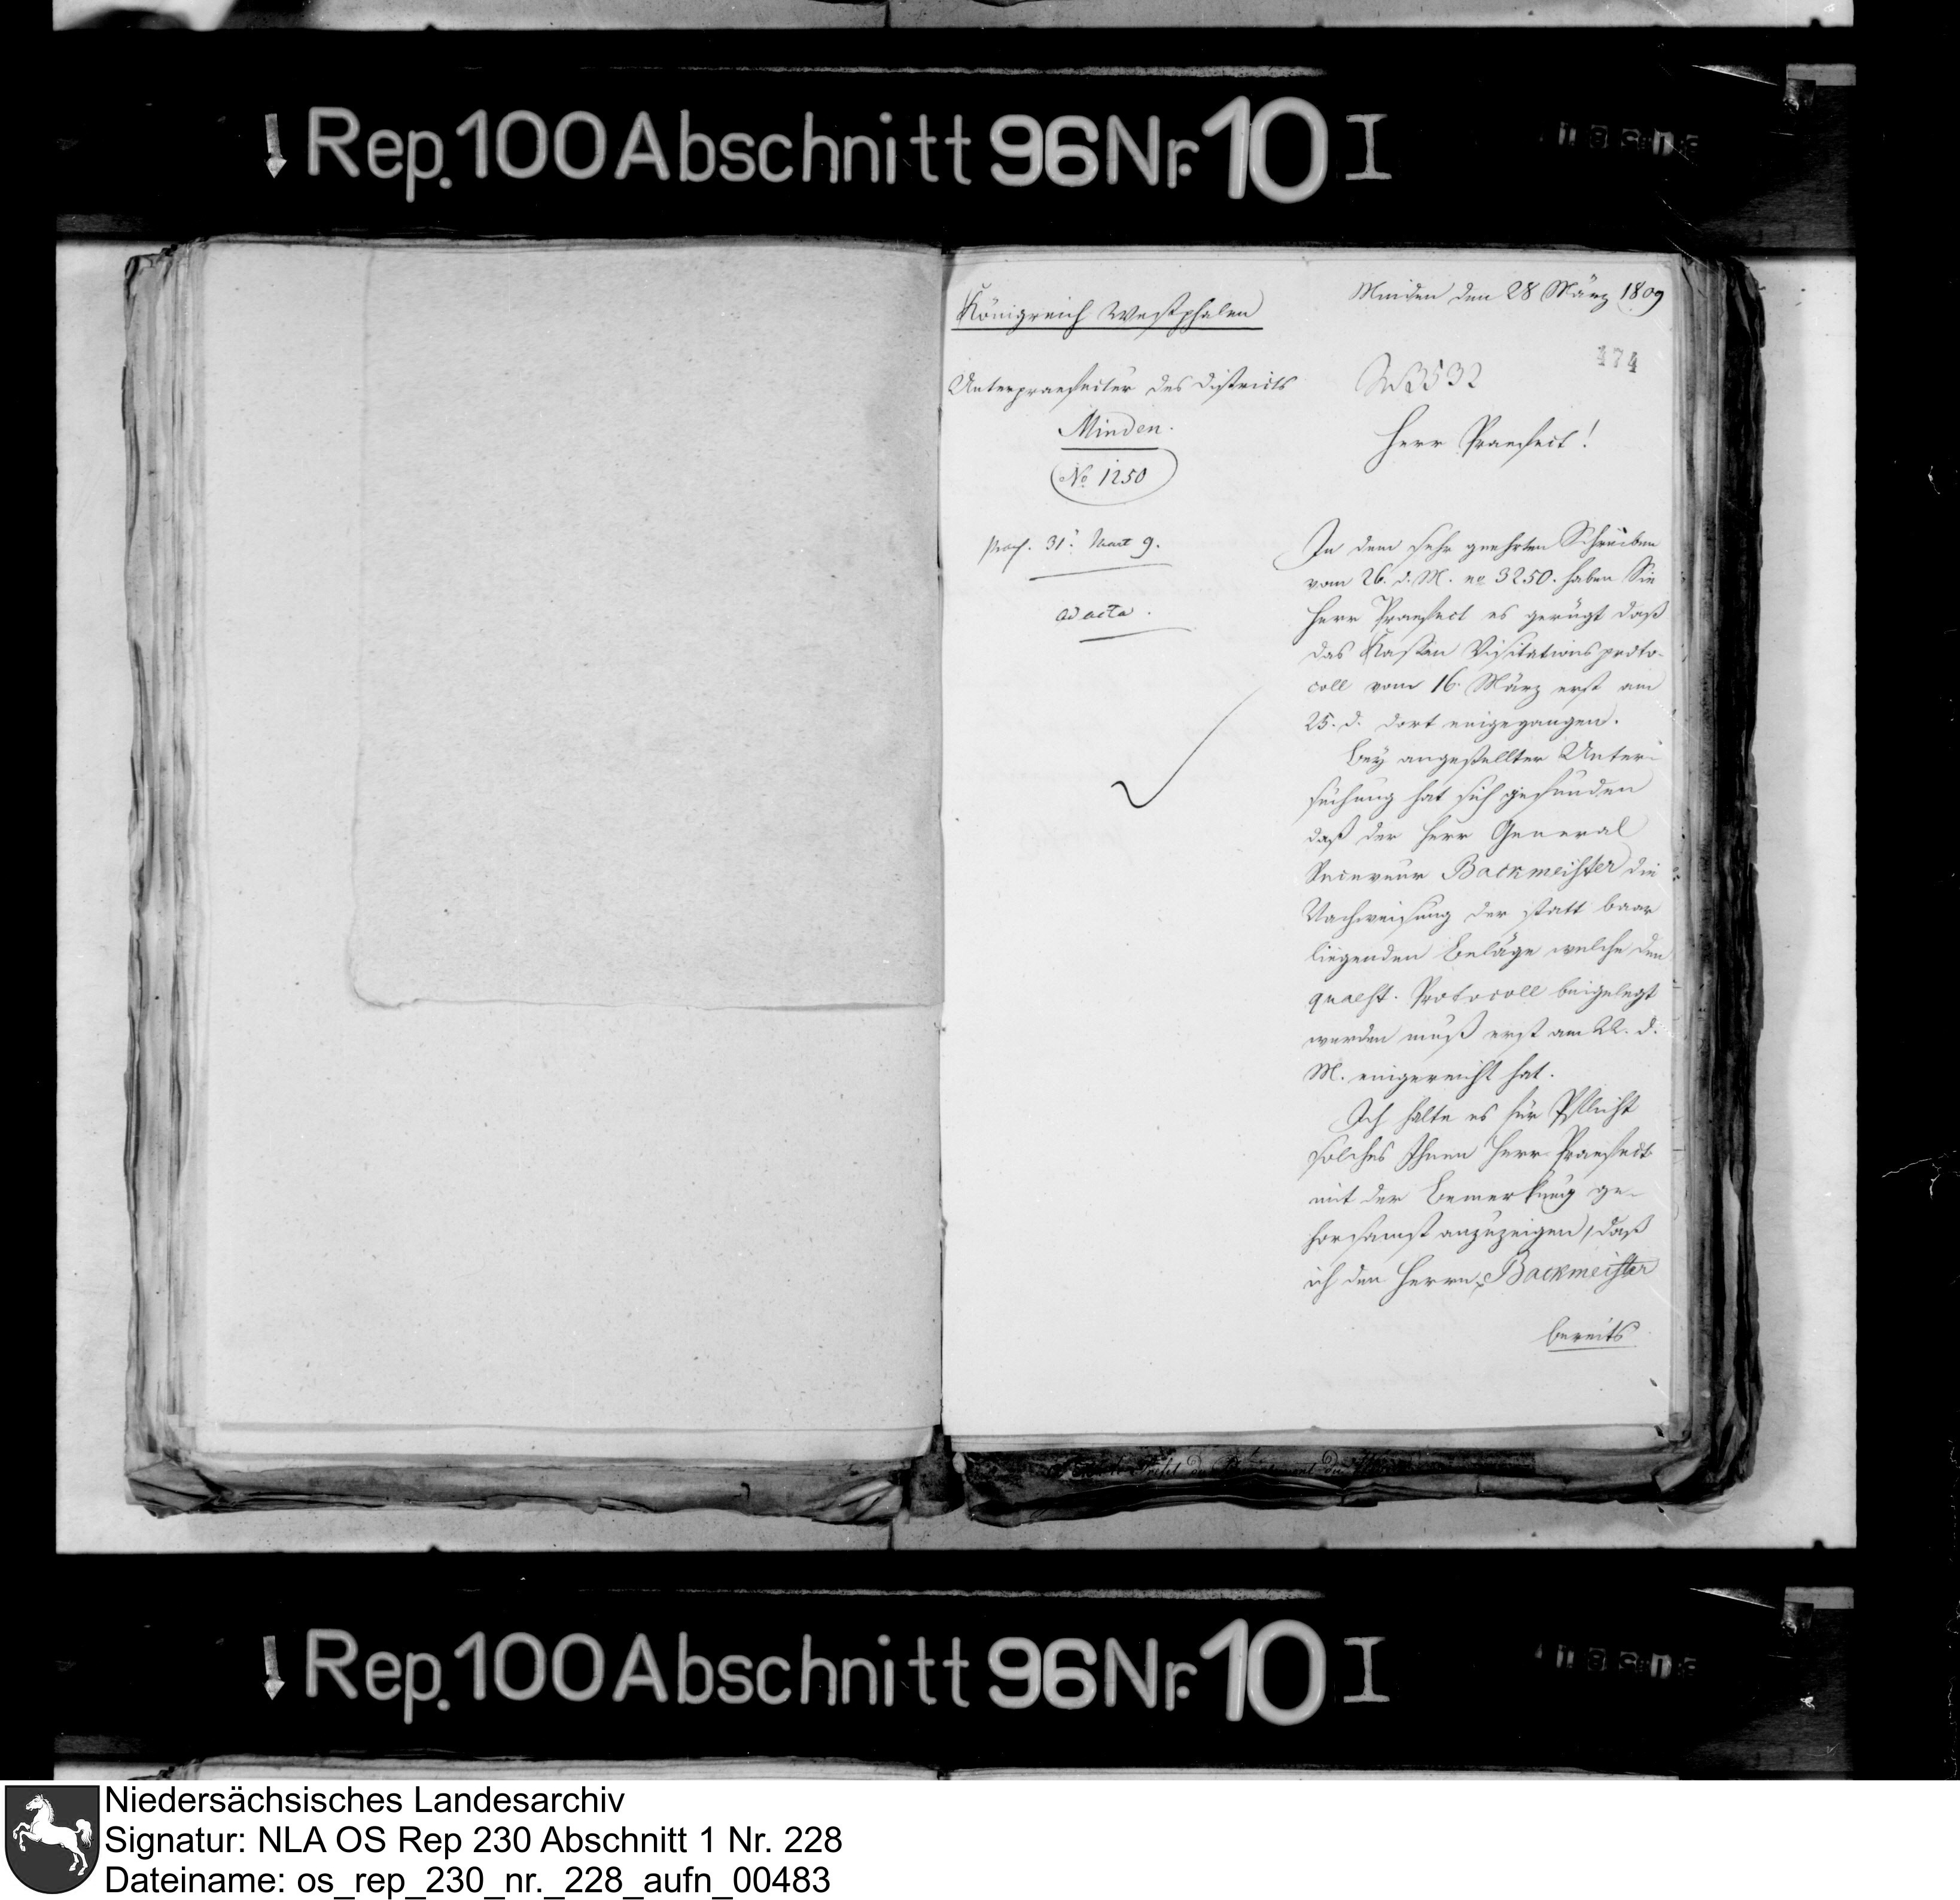 Rep. 100 Abschnitt 96 Nr. 10 I
Königreich Westphalen
Minden den 28 März 1809
474
Unterpraefectur des Districts
Minden.
No 1250
3532
Herr Praefect!
31. Mart 9.
ad acta.
In dem sehr geehrten Schreiben
vom 26. d. M. no 3250. haben Sie
Herr Praefect es gerügt daß
das Kassen Visitationsproto-
coll vom 16. März erst am
25. d. dort eingegangen.
Bey angestellter Unter-
suchung hat sich gefunden
daß der Herr General
Receveur Backmeister die
Nachweisung der statt baar
liegenden Beläge welche dem
quaest. Protocoll beigelegt
werden muß erst am 22. d.
M. eingereicht hat.
Ich halte es für Pflicht
solches Ihnen Herr Praefect
mit der Bemerkung ge-
horsamst anzuzeigen, daß
ich den Herrn Backmeister
bereits
Rep. 100 Abschnitt 96 Nr. 10 I
Niedersächsisches Landesarchiv
Signatur: NLA OS Rep 230 Abschnitt 1 Nr. 228
Dateiname: os_rep_230_nr._228_aufn_00483